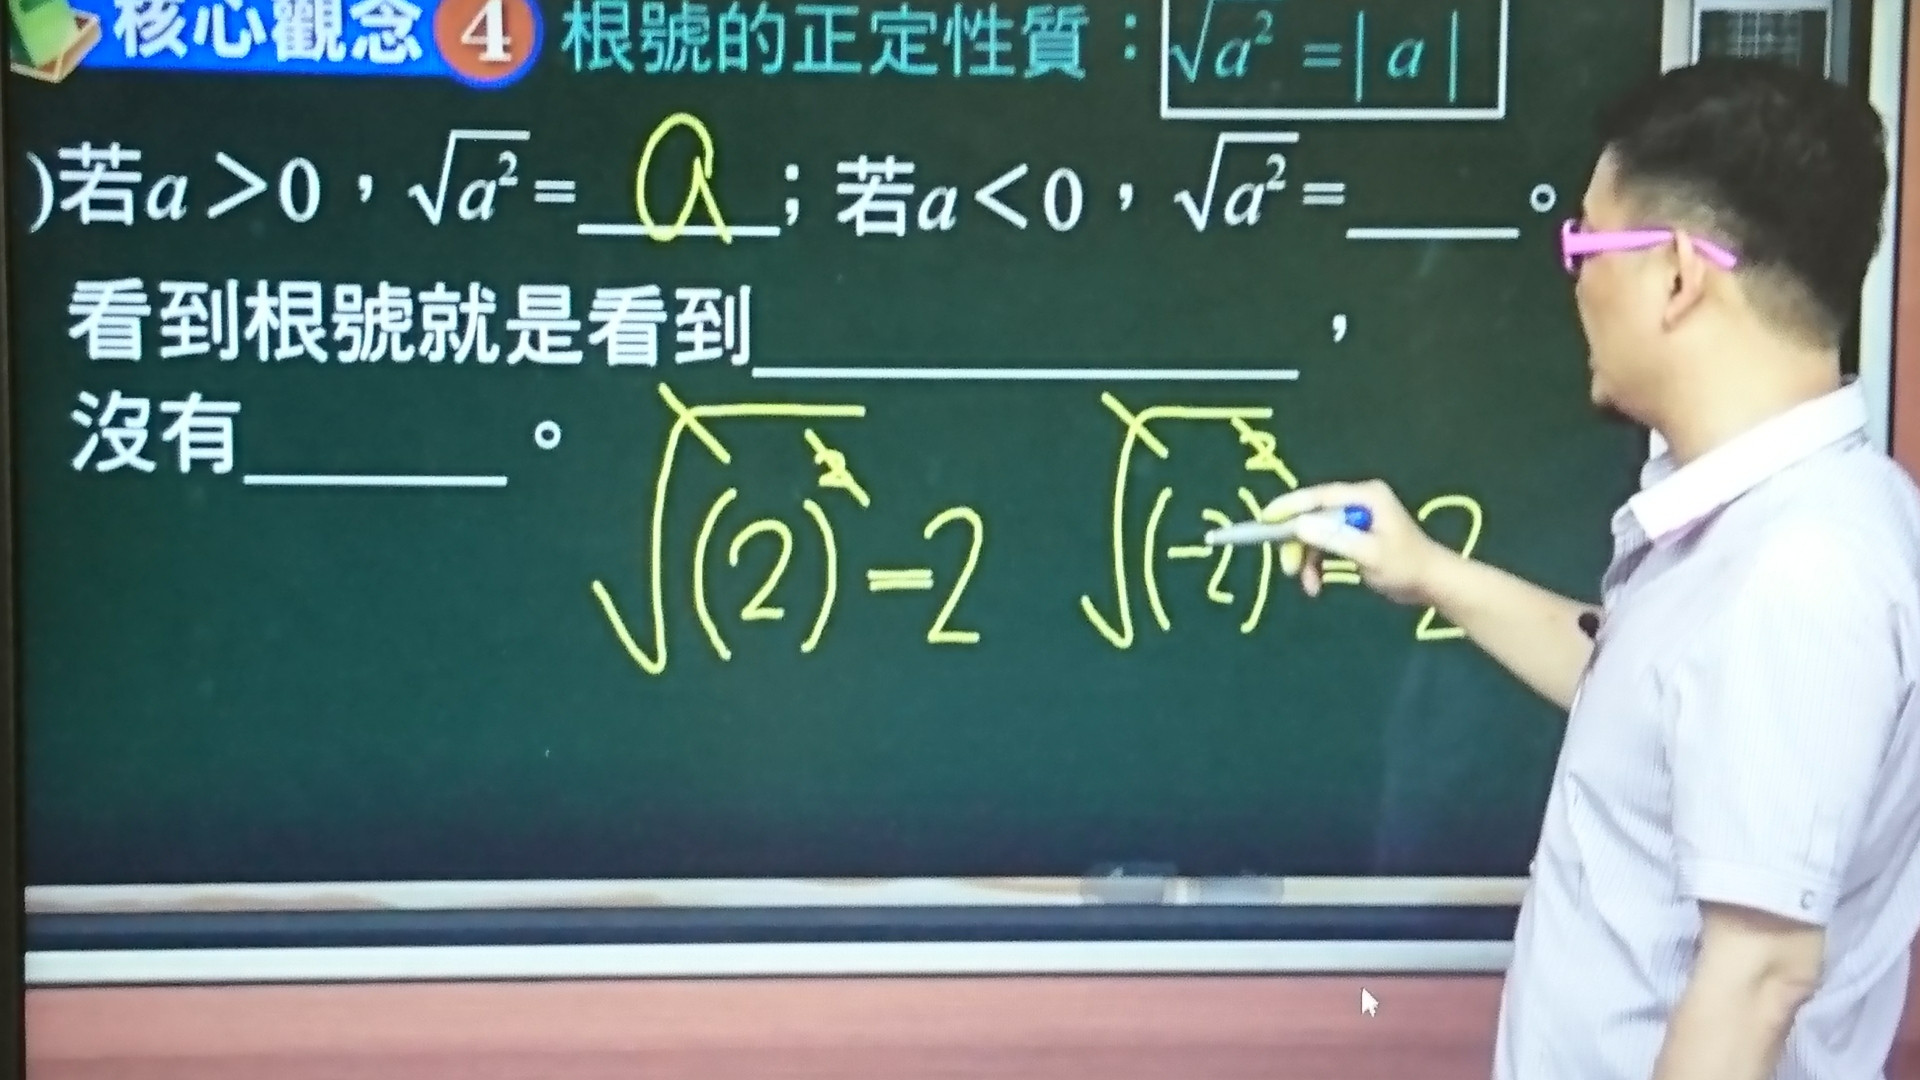 核心觀念 4 根號的正定性質：√a² =|a|
)若a>0，√a²= a ；若a<0，√a²=____。
看到根號就是看到____________，
沒有______。
√(2)² =2 √(-2)² =2